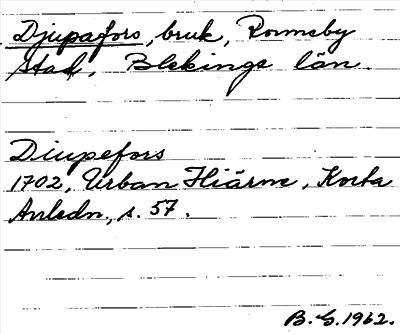 Djupafors, bruk, Ronneby
stad, Blekinge län.
Diupefors
1702, Urban Hiärne, Korta
Anledn, s. 57.
B.G. 1962.